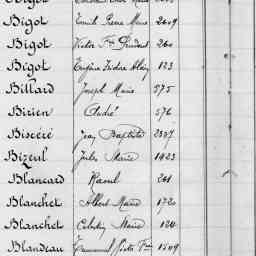 Bigot Emile Pierre Marie 2609
Bigot Victor Fçs Prudent 260
Bigot Eugène Isidore 123
Billard Joseph Marie 575
Birien André 576
Biscéré Jean Baptiste 2357
Bizeul Jules Marie 1423
Blancard Raoul 241
Blanchet Albert Marie 1720
Blanchet Marie 124
Blandeau Emmanuel 1549